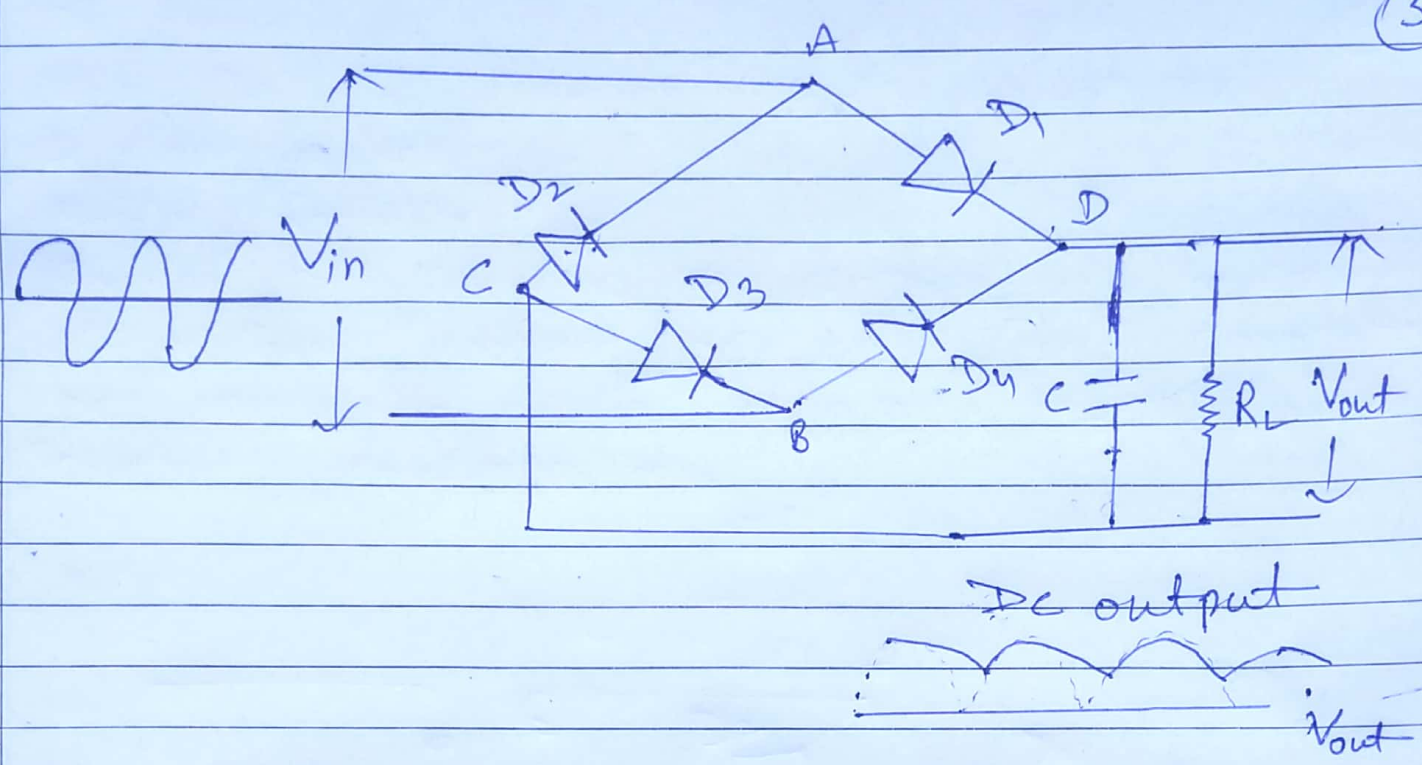 3
A
D1
D2
D
Vin
C
D3
D4
C
RL
Vout
B
DC output
Vout